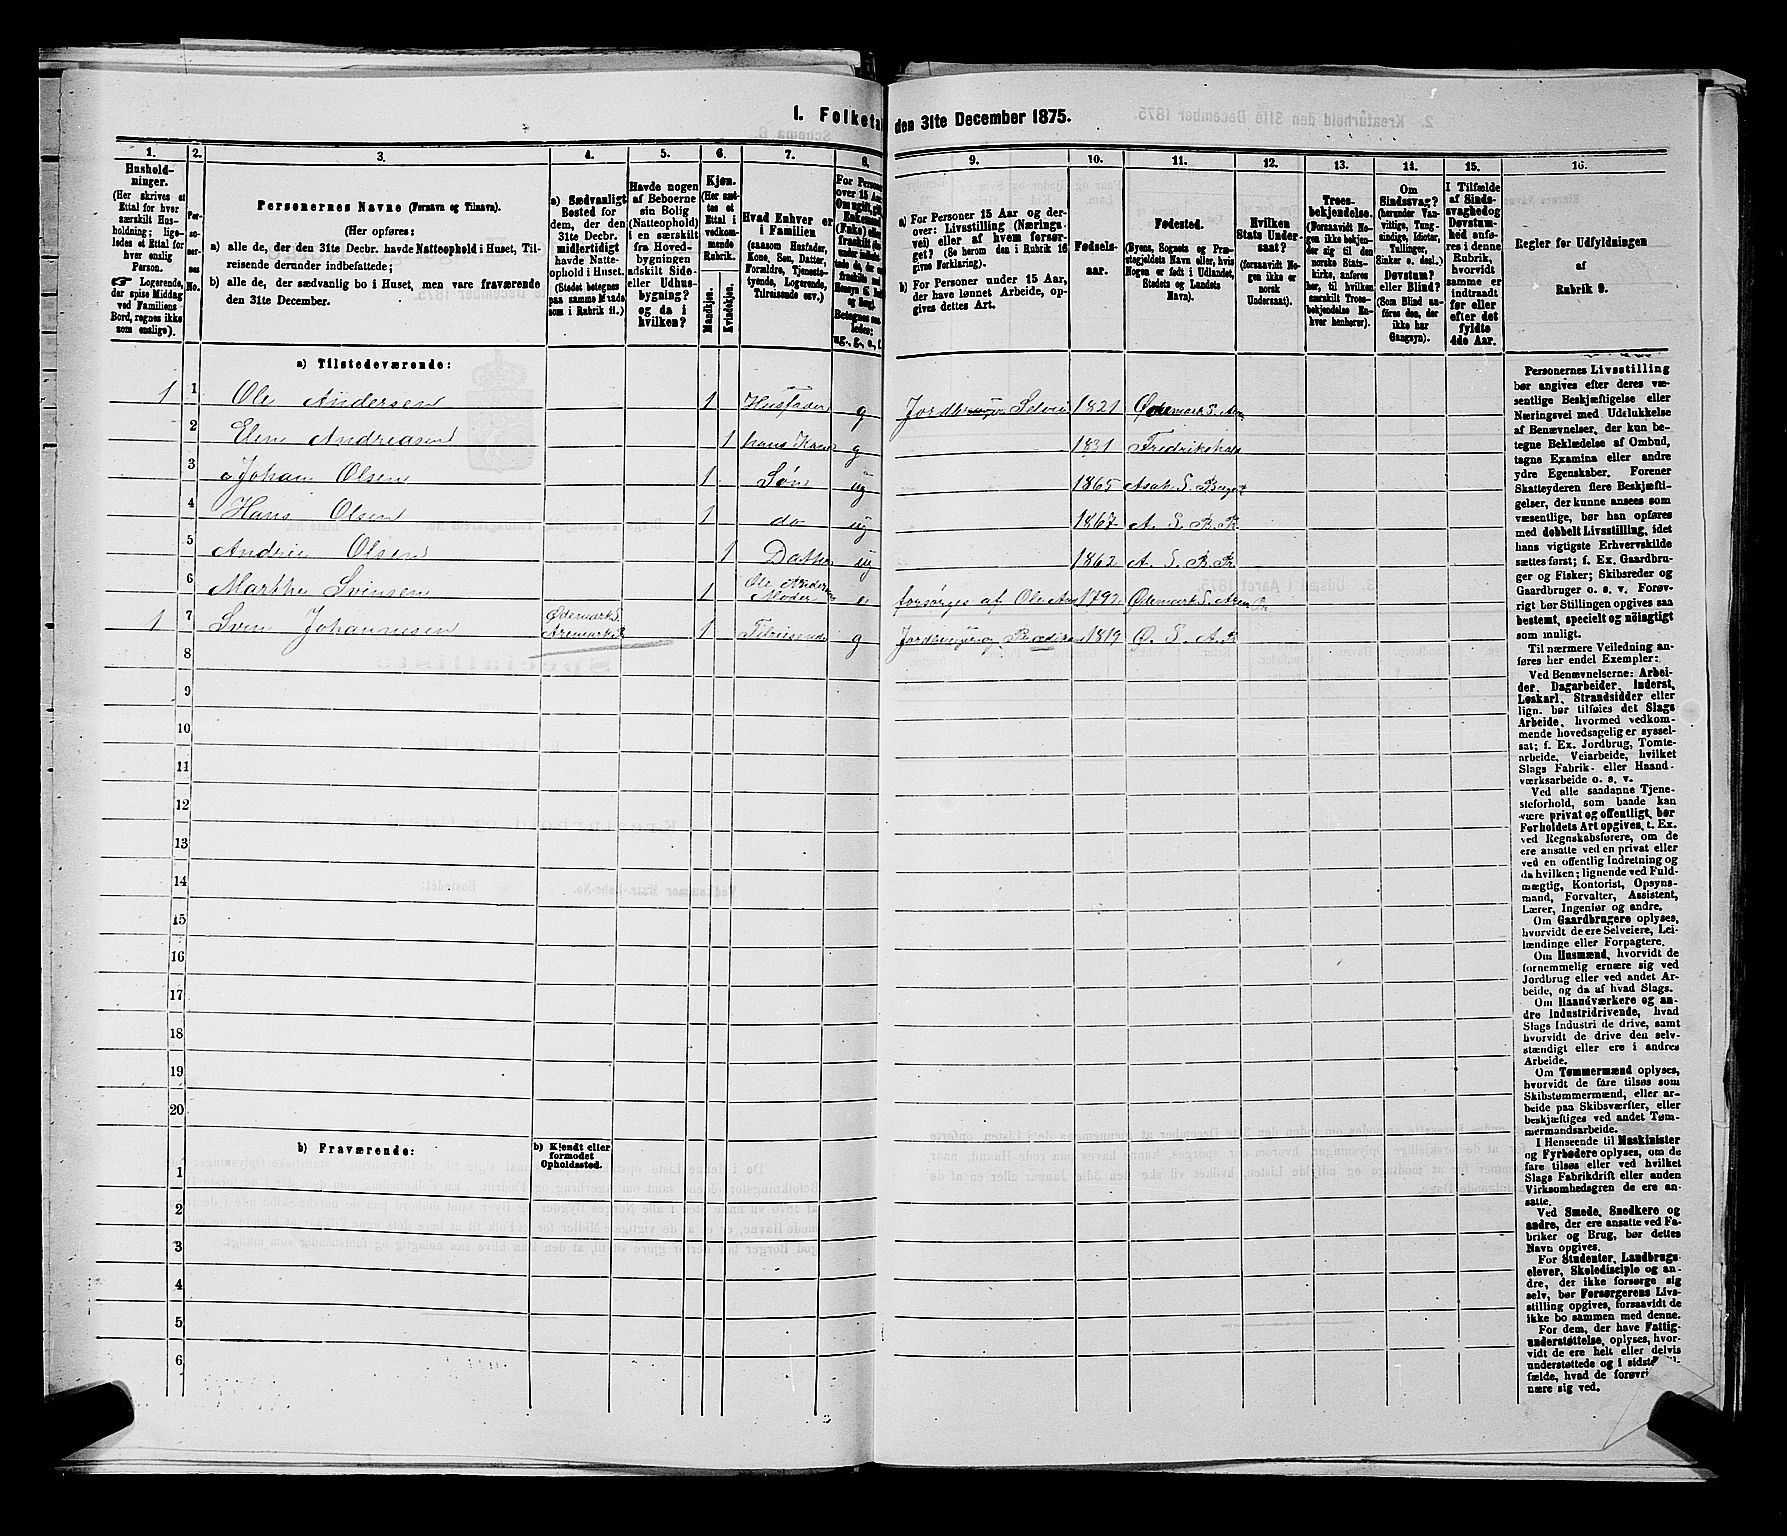 1. Folketæ
den 31te December 1875.
1.
Hushold-
ninger.
(Her skrives et
Ettal for hver
særskilt Hus-
holdning; lige-
ledes et Ettal for
hver enslig
Person.
Logerende,
der spise Middag
ved Familiens
Bord, regnes ikke
som enslige).
2.
Per-
so-
ner-
nes
No.
3.
Personernes Navne (Fornavn og Tilnavn).
(Her opføres:
a) alle de, der den 31te Decbr. havde Natteophold i Huset, Til-
reisende derunder indbefattede;
b) alle de, der sædvanlig bo i Huset, men vare fraværende
den 31te December.
4.
a) Sædvanligt
Bosted for
dem, der den
31te Decbr.
midlertidigt
havde Natte-
ophold i Huset.
(Stedet betegnes
paa samme Maade
som i Rubrik 11.)
5.
Havde nogen
af Beboerne
sin Bolig
(Natteophold)
i en særskilt
fra Hoved-
bygningen
adskilt Side-
eller Udhus-
bygning?
og da i
hvilken?
6.
Kjøn.
(Her sæt-
tes et
Ettal i
vedkom-
mende
Rubrik.
Mandkjøn.
Kvindekjøn.
7.
Hvad Enhver er
i Familien
(saasom Husfader,
Kone, Søn, Datter,
Forældre, Tjeneste-
tyende, Logerende,
Tilreisende osv.)
8.
9.
a) For Personer 15 Aar og der-
over: Livsstilling (Nærings-
vei) eller af hvem forsør-
get? (Se herom den i Rubrik 16
givne Forklaring).
b) For Personer under 15 Aar,
der have lønnet Arbeide, op-
gives dettes Art.
10.
Fødsels-
aar.
11.
Fødested.
(Byens, Sognets og Præ-
stegjeldets Navn eller, hvis
Nogen er født i Udlandet,
Stedets og Landets
Navn).
12.
Hvilken
Stats Under-
saat?
(forsaavidt No-
gen ikke er
norsk
Undersaat).
13.
Troes-
bekjendelse.
(Forsaavidt No-
gen ikke bekjen-
der sig til den
norske Stats-
kirke, anføres
her, til hvilken
særskilt Troes-
bekjendelse En-
hver henhører).
14.
Om
Sindssvag?
(herunder Van-
vittige, Tung-
sindige, Idioter,
Tullinger,
Sinker o. desl.)
Døvstum?
eller Blind?
(Som Blind an-
føres den, der
ikke har
Gangsyn).
15.
I Tilfælde
af Sinds-
svaghed og
Døvstum-
hed anfø-
res i denne
Rubrik,
hvorvidt
samme er
indtraadt
før eller
efter det
fyldte
4de Aar.
16.
Regler for Udfyldningen
af
Rubrik 9.
a) Tilstedeværende:
1 1 Ole Andersen 1 Husfader g Jordbruger Selveier 1821 Ødemark S. Arem
2 Elen Andreasen 1 hans Kone g 1831 Fredrikshald
3 Johan Olsen 1 Søn ug 1865 Asak S. Berget
4 Hans Olsen 1 do ug 1867 A. S. B. P.
5 Andrine Olsen 1 Datter ug 1862 A. S. B. P.
6 Marthe Svensen 1 Ole Andersens Moder e forsørges af Ole And 1792 Ødemark S. Arem Pr
1 7 Sven Johannesen Ødemark S. Aremark P. 1 Tilreisende g Jordbruger og 1819 Ø. S. A. P.
8
9
10
11
12
13
14
15
16
17
18
19
20
b) Fraværende:
b) Kjendt eller
formodet
Opholdssted.
1
2
3
4
5
6
Personernes Livsstilling
bør angives efter deres væ-
sentlige Beskjæftigelse eller
Næringsvei med Udelukkelse
af Benævnelser, der kun be-
tegne Beklædelse af Ombud,
tagne Examina eller andre
ydre Egenskaber. Forener
Skatteyderen flere Beskjæfti-
gelser, der kunne ansees som
væsentlige, bør han opføres
med dobbelt Livsstilling, idet
hans vigtigste Erhvervskilde
sættes først; f. Ex. Gaardbru-
ger og Fisker; Skibsreder og
Gaardbruger o. s. v. Forøv-
rigt bør Stillingen opgives saa
bestemt, specielt og nøiagtigt
som muligt.
Til nærmere Veiledning an-
føres her endel Exempler:
Ved Benævnelserne: Arbei-
der, Dagarbeider, Inderst,
Løskarl, Strandsidder eller
lign. bør tilføies det Slags
Arbeide, hvormed vedkom-
mende hovedsagelig er syssel-
sat; f. Ex. Jordbrug, Tomte-
arbeide, Veiarbeide, hvilket
Slags Fabrik- eller Haand-
værksarbeide o. s. v.
Ved alle saadanne Tjene-
steforhold, som baade kan
være privat og offentligt, bør
Forholdets Art opgives, t. Ex.
ved Regnskabsførere, om de
ere ansatte ved en privat eller
ved en offentlig Indretning og
da hvilken; lignende ved Fuld-
mægtig, Kontorist, Opsyns-
mand, Forvalter, Assistent,
Lærer, Ingeniør og andre.
Om Gaardbrugere oplyses,
hvorvidt de ere Selveiere, Lei-
lændinge eller Forpagtere.
Om Husmænd, hvorvidt de
fornemmelig ernære sig ved
Jordbrug eller ved andet Ar-
beide, og da af hvad Slags.
Om Haandværkere og an-
dre Industridrivende, hvad
Slags Industri de drive, samt
hvorvidt de drive den selv-
stændigt eller ere i andres
Arbeide.
Om Tømmermænd oplyses,
hvorvidt de fare tilsøs som
Skibstømmermænd, eller ar-
beide paa Skibsværfter, eller
beskjæftiges ved andet Tøm-
mermandsarbeide.
I Henseende til Maskinister
og Fyrbødere oplyses, om de
fare tilsøs eller ved hvilket
Slags Fabrikdrift eller anden
Virksomhedsgren de ere an-
satte.
Ved Smede, Snedkere og
andre, der ere ansatte ved Fa-
briker og Brug, bør dettes
Navn opgives.
For Studenter, Landbrugs-
elever, Skoledisciple og an-
dre, der ikke forsørge sig
selv, bør Forsørgerens Livs-
stilling opgives, forsaavidt de
ikke bo sammen med denne.
For dem, der have Fattig-
understøttelse, oplyses, hvor-
vidt de ere helt eller delvis
understøttede og i sidste Til-
fælde, hvad de forøvrigt
nære sig ved.